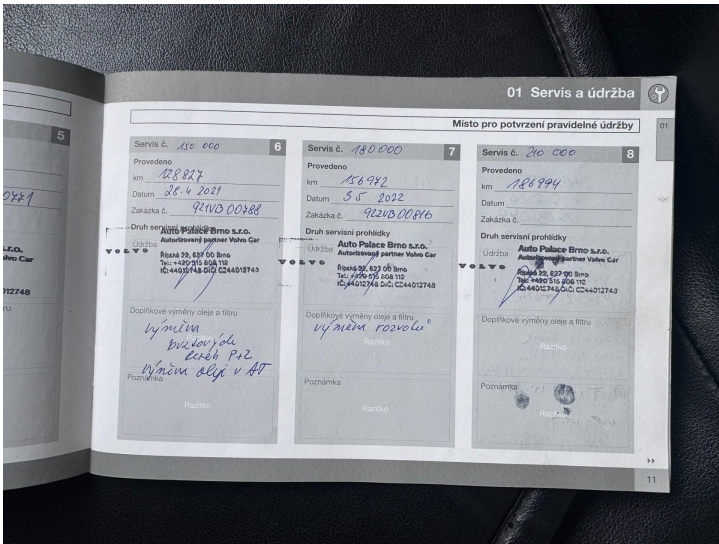 01 Servis a údržba
Místo pro potvrzení pravidelné údržby
01
5
0771
s.r.o.
olvo Car
012748
ru
Servis č. 150 000
6
Provedeno
km 128827
Datum 28.4 2021
Zakázka č. 921VB00788
Druh servisní prohlídky
Údržba
VOLVO
Auto Palace Brno s.r.o.
Autorizovaný partner Volvo Car
Řipská 22, 627 00 Brno
Tel.: +420 515 808 112
IČ: 44012748 DIČ: CZ44012748
Doplňkové výměny oleje a filtru
výměna
brzdových
P+Z
výměna oleje v AT
Poznámka
Razítko
Servis č. 180000
7
Provedeno
km 156972
Datum 3 5 2022
Zakázka č. 922VB00816
Druh servisní prohlídky
Údržba
VOLVO
Auto Palace Brno s.r.o.
Autorizovaný partner Volvo Car
Řipská 22, 627 00 Brno
Tel.: +420 515 808 112
IČ: 44012748 DIČ: CZ44012748
Doplňkové výměny oleje a filtru
výměna rozvodů
Razítko
Poznámka
Razítko
Servis č. 210 000
8
Provedeno
km 186994
Datum
Zakázka č.
Druh servisní prohlídky
Údržba
VOLVO
Auto Palace Brno s.r.o.
Autorizovaný partner Volvo Car
Řipská 22, 627 00 Brno
Tel.: +420 515 808 112
IČ: 44012748 DIČ: CZ44012748
Doplňkové výměny oleje a filtru
Razítko
Poznámka
Razítko
11